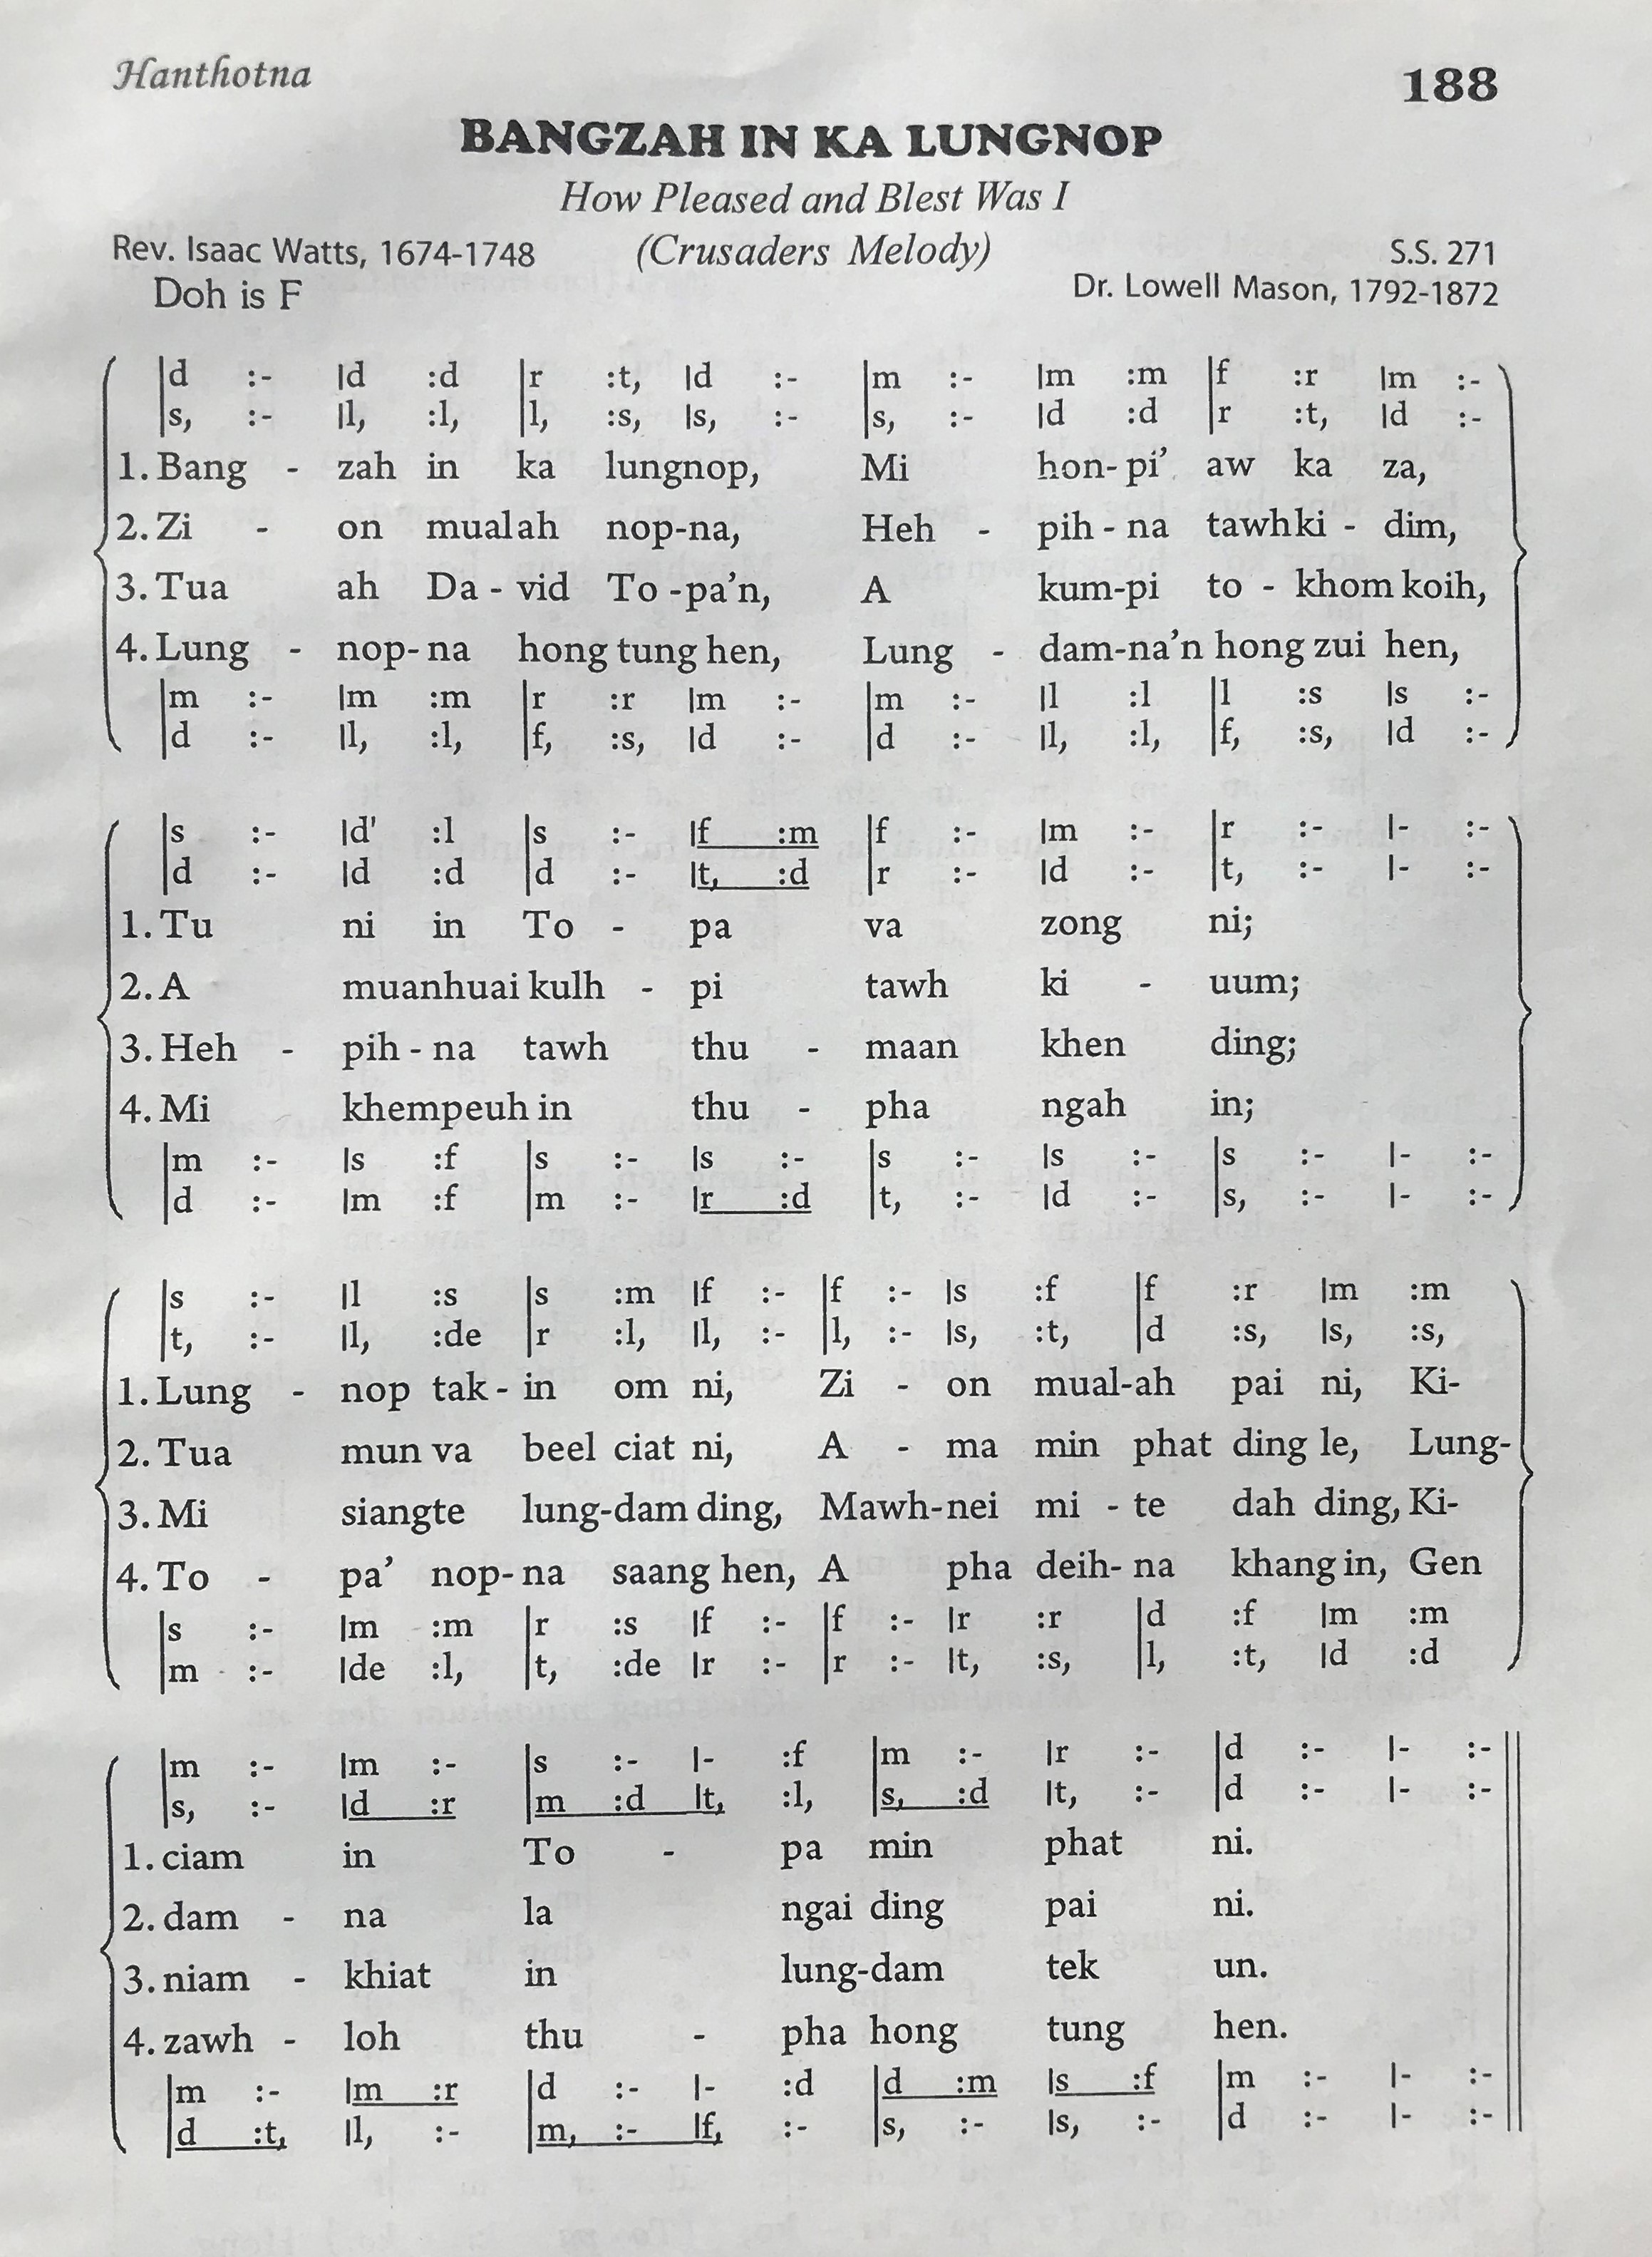 Hanthotna 188
BANGZAH IN KA LUNGNOP
How Pleased and Blest Was I
Rev. Isaac Watts, 1674-1748 (Crusaders Melody) S.S. 271
Doh is F Dr. Lowell Mason, 1792-1872
|d :- |d :d |r :t, |d :- |m :- |m :m |f :r |m :-
|s, :- |l, :l, |l, :s, |s, :- |s, :- |d :d |r :t, |d :-
1. Bang - zah in ka lungnop, Mi hon- pi’ aw ka za,
2. Zi - on mualah nop-na, Heh - pih - na tawhki - dim,
3. Tua ah Da - vid To -pa’n, A kum-pi to - khom koih,
4. Lung - nop- na hong tung hen, Lung - dam-na’n hong zui hen,
|m :- |m :m |r :r |m :- |m :- |l :l |l :s |s :-
|d :- |l, :l, |f, :s, |d :- |d :- |l, :l, |f, :s, |d :-
|s :- |d' :l |s :- |f :m |f :- |m :- |r :- |- :-
|d :- |d :d |d :- |t, :d |r :- |d :- |t, :- |- :-
1. Tu ni in To - pa va zong ni;
2. A muanhuai kulh - pi tawh ki - uum;
3. Heh - pih - na tawh thu - maan khen ding;
4. Mi khempeuh in thu - pha ngah in;
|m :- |s :f |s :- |s :- |s :- |s :- |s :- |- :-
|d :- |m :f |m :- |r :d |t, :- |d :- |s, :- |- :-
|s :- |l :s |s :m |f :- |f :- |s :f |f :r |m :m
|t, :- |l, :de |r :l, |l, :- |l, :- |s, :t, |d :s, |s, :s,
1. Lung - nop tak - in om ni, Zi - on mual-ah pai ni, Ki-
2. Tua mun va beel ciat ni, A - ma min phat ding le, Lung-
3. Mi siangte lung-dam ding, Mawh-nei mi - te dah ding, Ki-
4. To - pa’ nop- na saang hen, A pha deih- na khang in, Gen
|s :- |m :m |r :s |f :- |f :- |r :r |d :f |m :m
|m :- |de :l, |t, :de |r :- |r :- |t, :s, |l, :t, |d :d
|m :- |m :- |s :- |- :f |m :- |r :- |d :- |- :-
|s, :- |d :r |m :d |t, :l, |s, :d |t, :- |d :- |- :-
1. ciam in To - pa min phat ni.
2. dam - na la ngai ding pai ni.
3. niam - khiat in lung-dam tek un.
4. zawh - loh thu - pha hong tung hen.
|m :- |m :r |d :- |- :d |d :m |s :f |m :- |- :-
|d :t, |l, :- |m, :- |f, :- |s, :- |s, :- |d :- |- :-